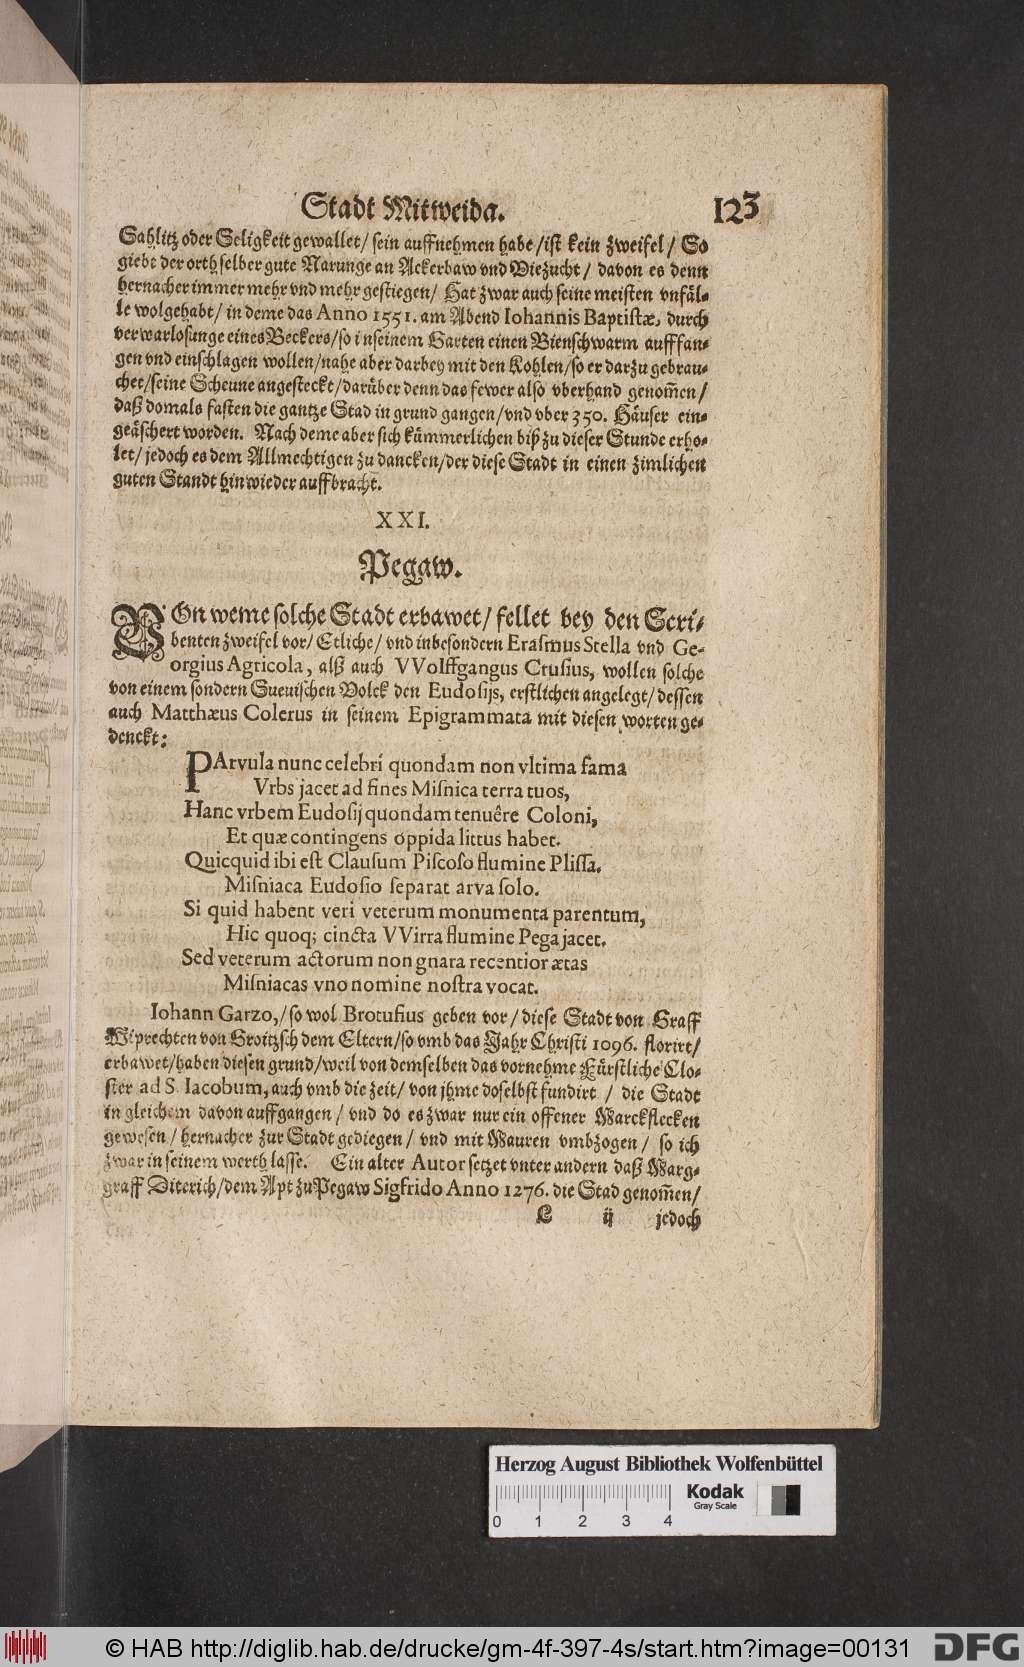 Stadt Mitweida. 123
Sahlitz oder Seligkeit gewallet/ sein auffnehmen habe/ist kein zweifel/ So
giebt der orth selber gute Narunge an Ackerbaw vnd Viezucht/ davon es denn
hernacher immer mehr vnd mehr gestiegen/ Hat zwar auch seine meisten vnfäl-
le wolgehabt/ in deme das Anno 1551. am Abend Iohannis Baptistæ, durch
verwarlosunge eines Beckers/so in seinem Garten einen Bienschwarm aufffan-
gen vnd einschlagen wollen/nahe aber darbey mit den Kohlen/so er darzu gebrau-
chet/seine Scheune angesteckt/darüber denn das fewer also vberhand genom̃en/
daß domals fasten die gantze Stad in grund gangen/vnd vber 350. Häuser ein-
geäschert worden. Nach deme aber sich kümmerlichen biß zu dieser Stunde erho-
let/ jedoch es dem Allmechtigen zu dancken/der diese Stadt in einen zimlichen
guten Standt hinwieder auffbracht.
XXI.
Pegaw.
VOn weme solche Stadt erbawet/ fellet bey den Scri-
benten zweifel vor/ Etliche/ vnd inbesondern Erasmus Stella vnd Ge-
orgius Agricola, alß auch VVolffgangus Crusius, wollen solche
von einem sondern Suevischen Volck den Eudosijs, erstlichen angelegt/ dessen
auch Matthæus Colerus in seinem Epigrammata mit diesen worten ge-
denckt:
PArvula nunc celebri quondam non vltima fama
Vrbs jacet ad fines Misnica terra tuos,
Hanc vrbem Eudosij quondam tenuêre Coloni,
Et quæ contingens oppida littus habet.
Quicquid ibi est Clausum Piscoso flumine Plissa.
Misniaca Eudosio separat arva solo.
Si quid habent veri veterum monumenta parentum,
Hic quoq; cincta VVirra flumine Pega jacet.
Sed veterum actorum non gnara recentior ætas
Misniacas vno nomine nostra vocat.
Iohann Garzo,/so wol Brotufius geben vor/ diese Stadt von Graff
Wiprechten von Groitzsch dem Eltern/so vmb das Jahr Christi 1096. florirt/
erbawet/haben diesen grund/weil von demselben das vornehme Fürstliche Clo-
ster ad S. Iacobum, auch vmb die zeit/ von jhme doselbst fundirt / die Stadt
in gleichem davon auffgangen/ vnd do es zwar nur ein offener Marckflecken
gewesen/ hernacher zur Stadt gediegen/ vnd mit Mauren vmbzogen/ so ich
zwar in seinem werth lasse. Ein alter Autor setzet vnter andern daß Marg-
graff Diterich/dem Apt zu Pegaw Sigfrido Anno 1276. die Stad genom̃en/
L ij jedoch
Herzog August Bibliothek Wolfenbüttel
Kodak
Gray Scale
0 1 2 3 4
© HAB http://diglib.hab.de/drucke/gm-4f-397-4s/start.htm?image=00131
DFG